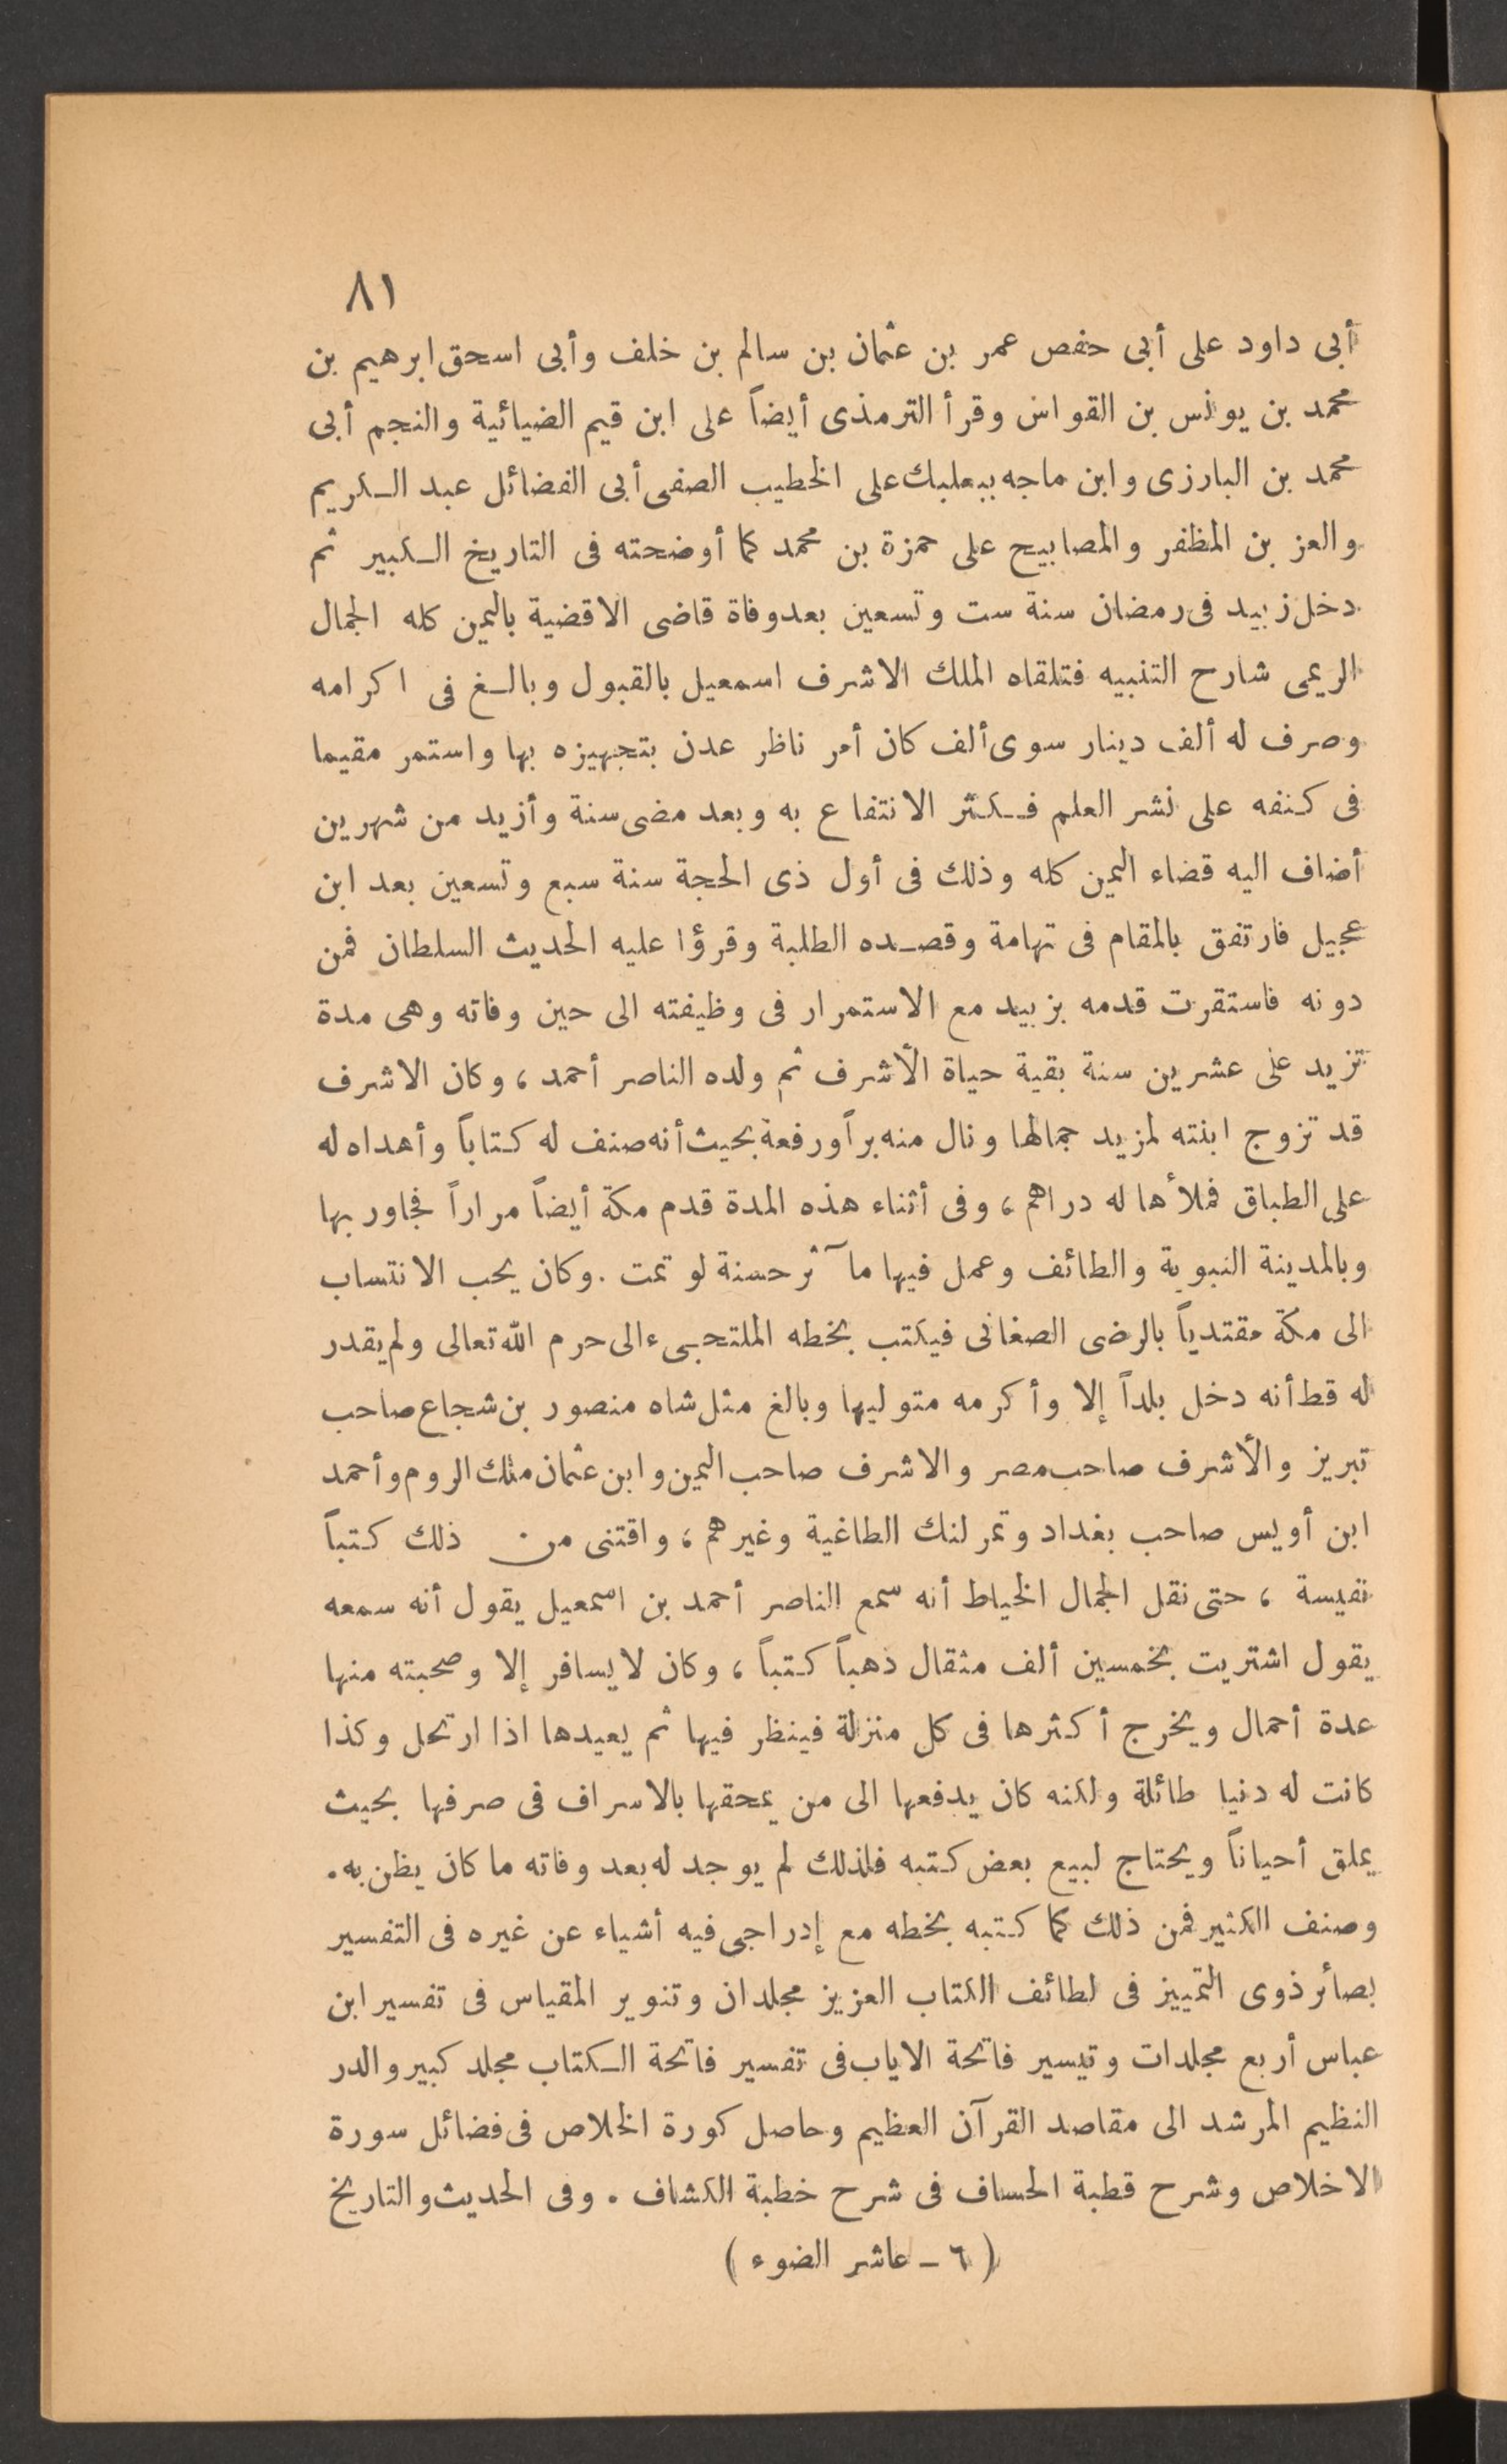 ٨١
أبى داود على أبى حفص عمر بن عثمان بن سالم بن خلف وأبى اسحق ابرهيم بن
محمد بن يونس بن القواس وقرأ الترمذى أيضاً على ابن قيم الضيائية والنجم أبى
محمد بن البارزى وابن ماجه ببعلبك على الخطيب الصفى أبى الفضائل عبد الكريم
والعز بن المظفر والمصابيح على حمزة بن محمد كما أوضحته فى التاريخ الكبير ثم
دخل زبيد فى رمضان سنة ست وتسعين بعد وفاة قاضى الاقضية باليمن كله الجمال
الريمى شارح التنبيه فتلقاه الملك الاشرف اسمعيل بالقبول وبالغ فى اكرامه
وصرف له ألف دينار سوى ألف كان أمر ناظر عدن بتجهيزه بها واستمر مقيما
فى كنفه على نشر العلم فكثر الانتفاع به وبعد مضى سنة وأزيد من شهرين
أضاف اليه قضاء اليمن كله وذلك فى أول ذى الحجة سنة سبع وتسعين بعد ابن
عجيل فارتفق بالمقام فى تهامة وقصده الطلبة وقرؤا عليه الحديث السلطان فمن
دونه فاستقرت قدمه بزبيد مع الاستمرار فى وظيفته الى حين وفاته وهى مدة
تزيد على عشرين سنة بقية حياة الأشرف ثم ولده الناصر أحمد ، وكان الاشرف
قد تزوج ابنته لمزيد جمالها ونال منه براً ورفعة بحيث أنه صنف له كتاباً وأهداه له
على الطباق فملأها له دراهم ، وفى أثناء هذه المدة قدم مكة أيضاً مراراً فجاور بها
وبالمدينة النبوية والطائف وعمل فيها مآثر حسنة لو تمت . وكان يحب الانتساب
الى مكة مقتدياً بالرضى الصغانى فيكتب بخطه الملتجىء الى حرم الله تعالى ولم يقدر
له قط أنه دخل بلداً إلا وأكرمه متوليها وبالغ مثل شاه منصور بن شجاع صاحب
تبريز والأشرف صاحب مصر والاشرف صاحب اليمن وابن عثمان ملك الروم وأحمد
ابن أويس صاحب بغداد وتمر لنك الطاغية وغيرهم ، واقتنى من ذلك كتباً
نفيسة ، حتى نقل الجمال الخياط أنه سمع الناصر أحمد بن اسمعيل يقول أنه سمعه
يقول اشتريت بخمسين ألف مثقال ذهباً كتباً ، وكان لا يسافر إلا وصحبته منها
عدة أحمال ويخرج أكثرها فى كل منزلة فينظر فيها ثم يعيدها اذا ارتحل وكذا
كانت له دنيا طائلة ولكنه كان يدفعها الى من يمحقها بالاسراف فى صرفها بحيث
يملق أحياناً ويحتاج لبيع بعض كتبه فلذلك لم يوجد له بعد وفاته ما كان يظن به .
وصنف الكثير فمن ذلك كما كتبه بخطه مع إدراجى فيه أشياء عن غيره فى التفسير
بصائر ذوى التمييز فى لطائف الكتاب العزيز مجلدان وتنوير المقياس فى تفسير ابن
عباس أربع مجلدات وتيسير فاتحة الاياب فى تفسير فاتحة الكتاب مجلد كبير والدر
النظيم المرشد الى مقاصد القرآن العظيم وحاصل كورة الخلاص فى فضائل سورة
الاخلاص وشرح قطبة الحساف فى شرح خطبة الكشاف . وفى الحديث والتاريخ
( ٦ - عاشر الضوء )